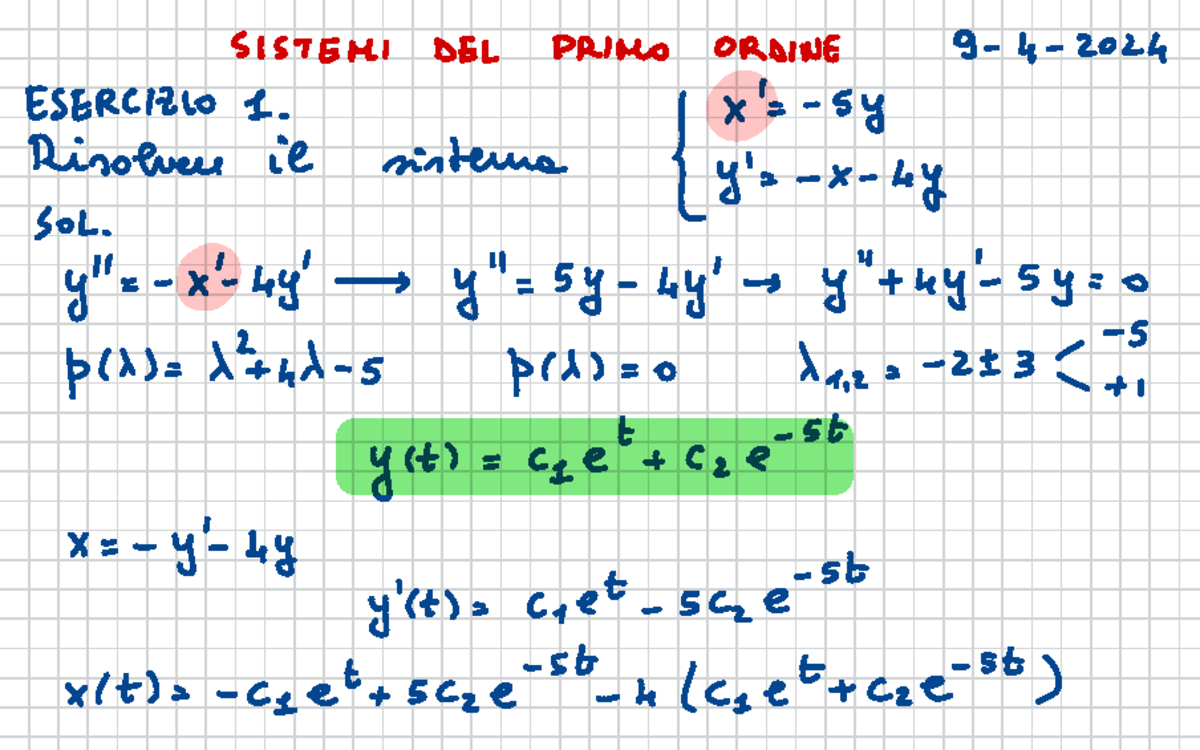 SISTEMI DEL PRIMO ORDINE 9-4-2024
ESERCIZIO 1.
Risolvere il sistema { x' = -5y
y' = -x - 4y
SOL.
y'' = -x' - 4y' ⟶ y'' = 5y - 4y' → y'' + 4y' - 5y = 0
p(λ) = λ² + 4λ - 5 p(λ) = 0 λ₁,₂ = -2 ± 3 < -5 +1
y(t) = c₁e^t + c₂e^{-5t}
x = -y' - 4y
y'(t) = c₁e^t - 5c₂e^{-5t}
x(t) = -c₁e^t + 5c₂e^{-5t} - 4(c₁e^t + c₂e^{-5t})